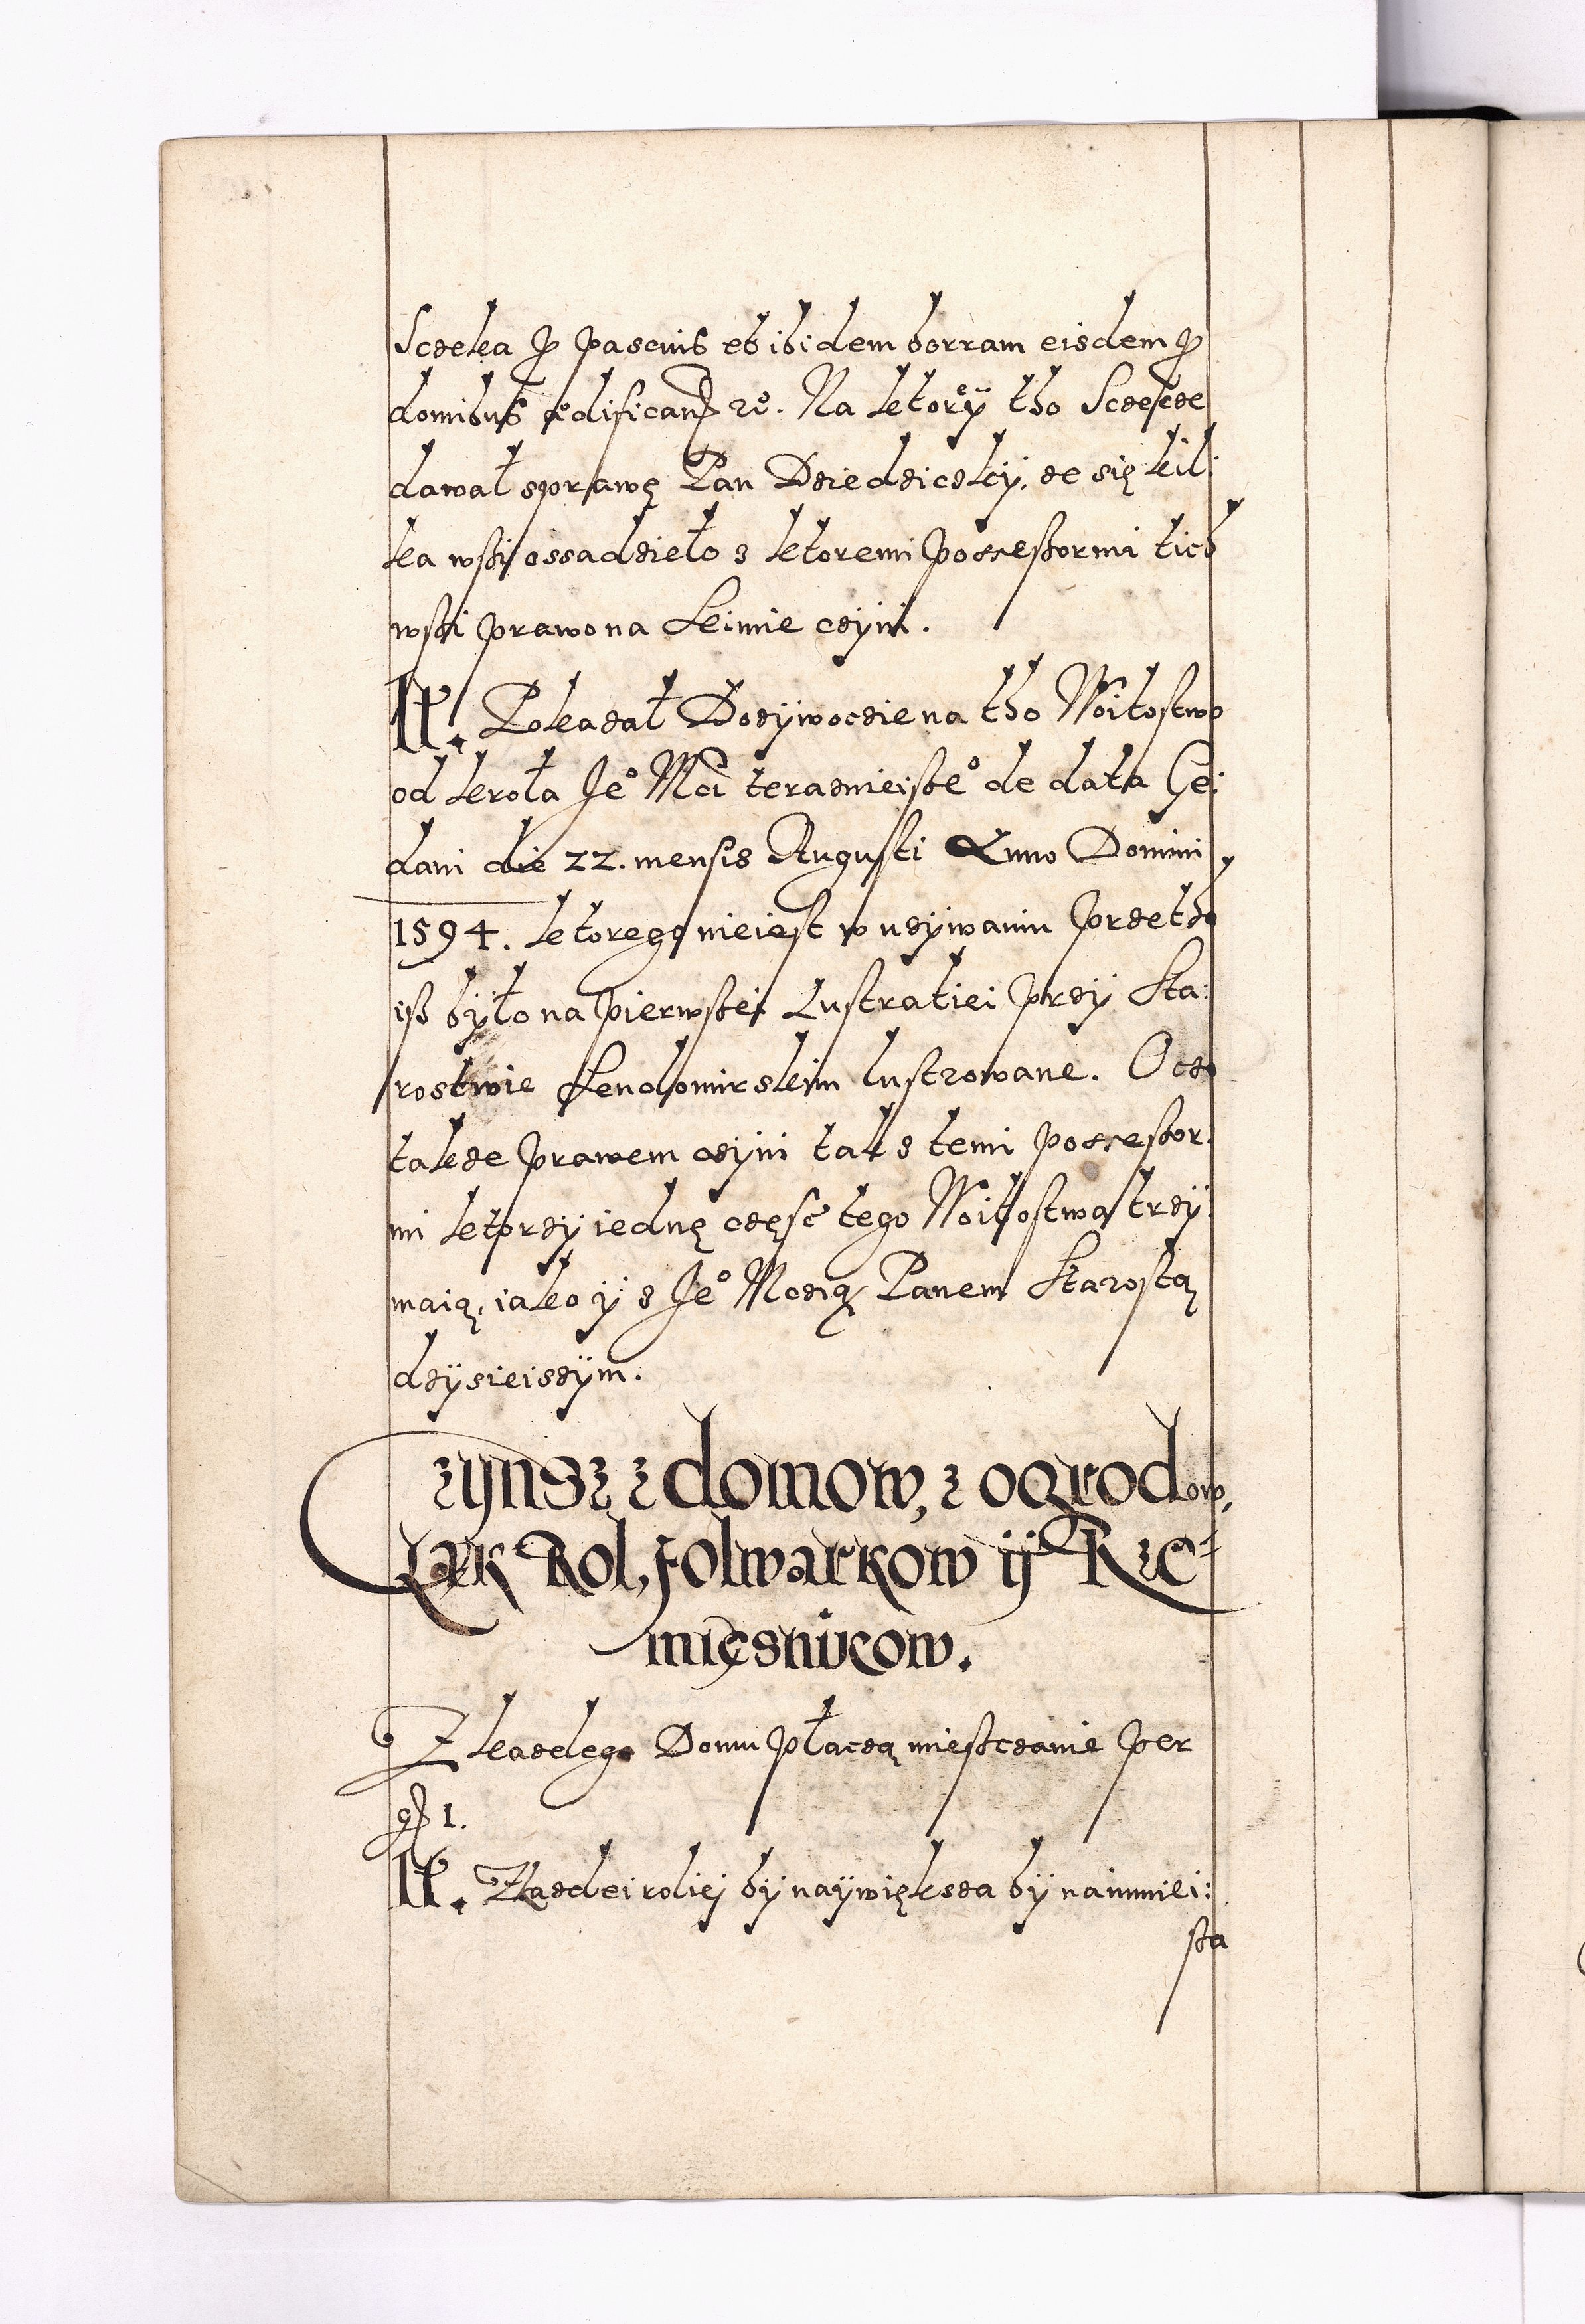 Sczeka p pascuis et ibidem borram eisdem p
domibus ædificand etc. Na ktorÿ tho Sczescze
dawał sprawę Pan Dziedziczkÿ, ze się kil:
ka wsßi ossadzieło z ktoremi possesßormi tich
wsßi prawo na Seimie czÿni.
It. Pokazał Dozÿwoczie na tho Woitostwo
od krola Je° Mci teraznieisße° de data Ge:
dani die 22. mensis Augusti Anno Domini
1594. ktorego nieiest w uzÿwaniu przetho
isß bÿło na pierwsßei Lustratiei przÿ Sta:
rostwie Sendomirskim lustrowane. Oczo
takze prawem czÿni tak z temi possesßor:
mi ktorzÿ iednę częsć tego Woitostwa trzÿ:
maią, iako ÿ z Je° Mczią Panem Starostą
dzÿsieiszÿm.
Czÿnsz z domow, z ogrodow,
Łąk Rol, folwarkow ÿ Rze-
mięsnikow.
Z kazdego Domu płaczą miesßczanie per
gr 1.
It. Z kazdei roliej bÿ naÿwiększa bÿ naimniei:
sßa